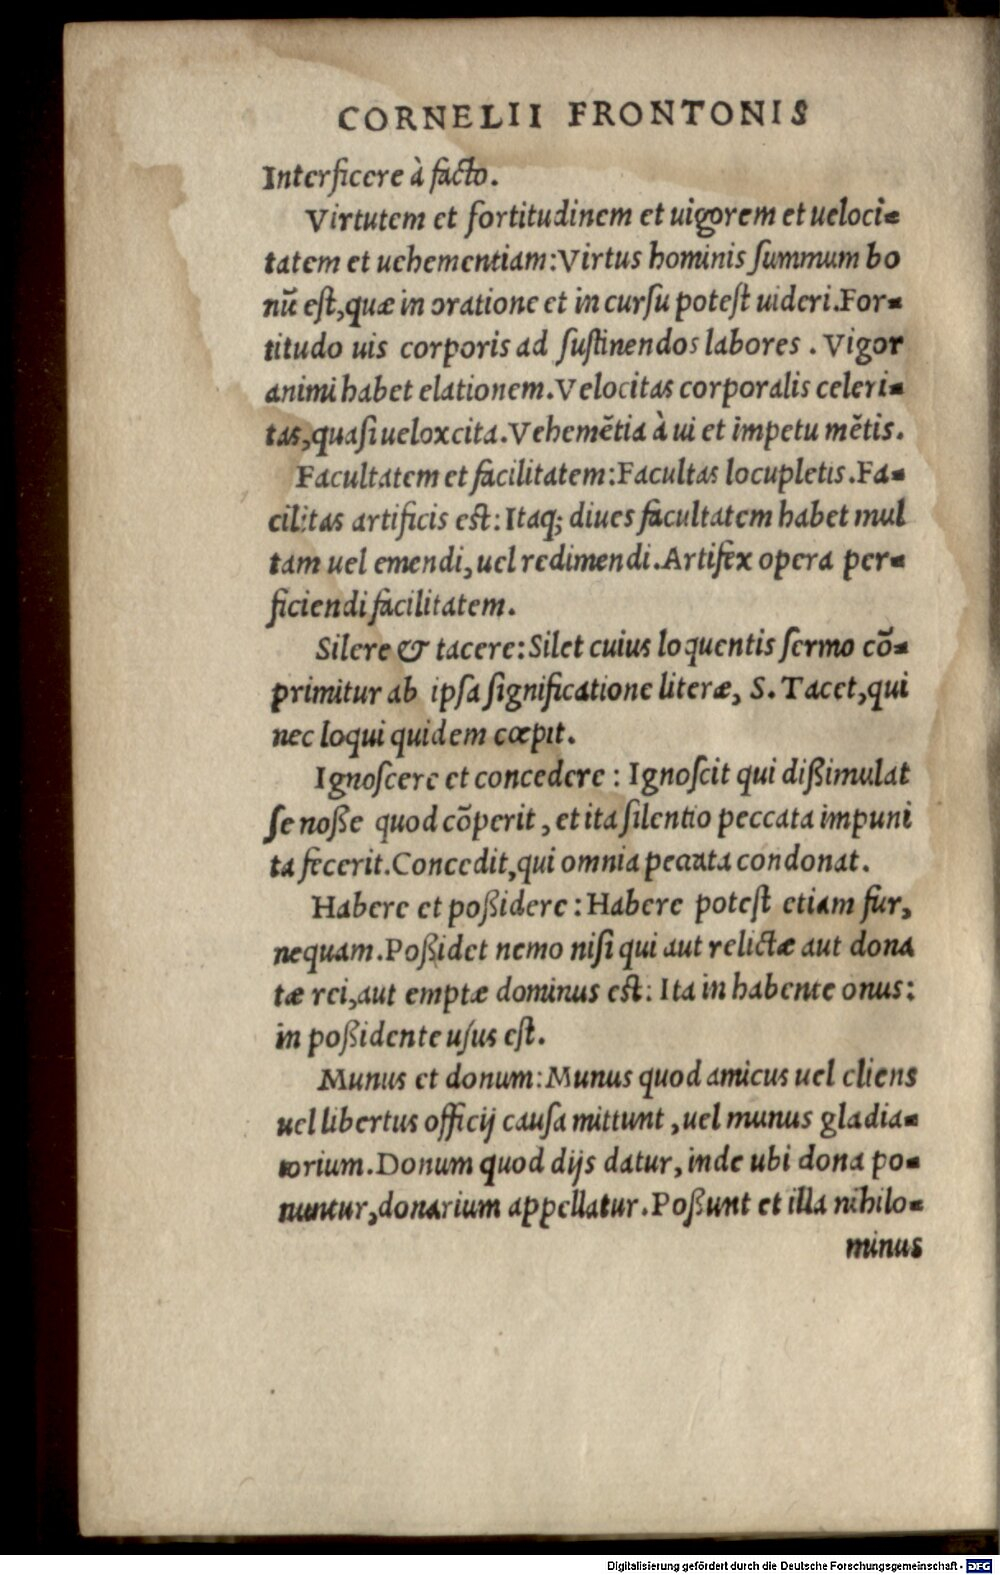 CORNELII FRONTONIS
Interficere à facto.
Virtutem et fortitudinem et uigorem et ueloci-
tatem et uehementiam: Virtus hominis ſummum bo
nũ eſt, quæ in oratione et in curſu poteſt uideri. For-
titudo uis corporis ad ſuſtinendos labores. Vigor
animi habet elationem. Velocitas corporalis celeri-
tas, quaſi uelox cita. Vehemẽtia à ui et impetu mẽtis.
Facultatem et facilitatem: Facultas locupletis. Fa-
cilitas artificis est: Itaq; diues facultatem habet mul
tam uel emendi, uel redimendi. Artifex opera per-
ficiendi facilitatem.
Silere & tacere: Silet cuius loquentis ſermo cõ-
primitur ab ipſa ſignificatione literæ, S. Tacet, qui
nec loqui quidem cœpit.
Ignoſcere et concedere: Ignoſcit qui dißimulat
ſe noße quod cõperit, et ita ſilentio peccata impuni
ta fecerit. Concedit, qui omnia peccata condonat.
Habere et poßidere: Habere poteſt etiam fur,
nequam. Poßidet nemo niſi qui aut relictæ aut dona
tæ rei, aut emptæ dominus est: Ita in habente onus:
in poßidente uſus eſt.
Munus et donum: Munus quod amicus uel cliens
uel libertus officij cauſa mittunt, uel munus gladia-
torium. Donum quod dijs datur, inde ubi dona po-
nuntur, donarium appellatur. Poßunt et illa nihilo-
minus
Digitalisierung gefördert durch die Deutsche Forschungsgemeinschaft - DFG